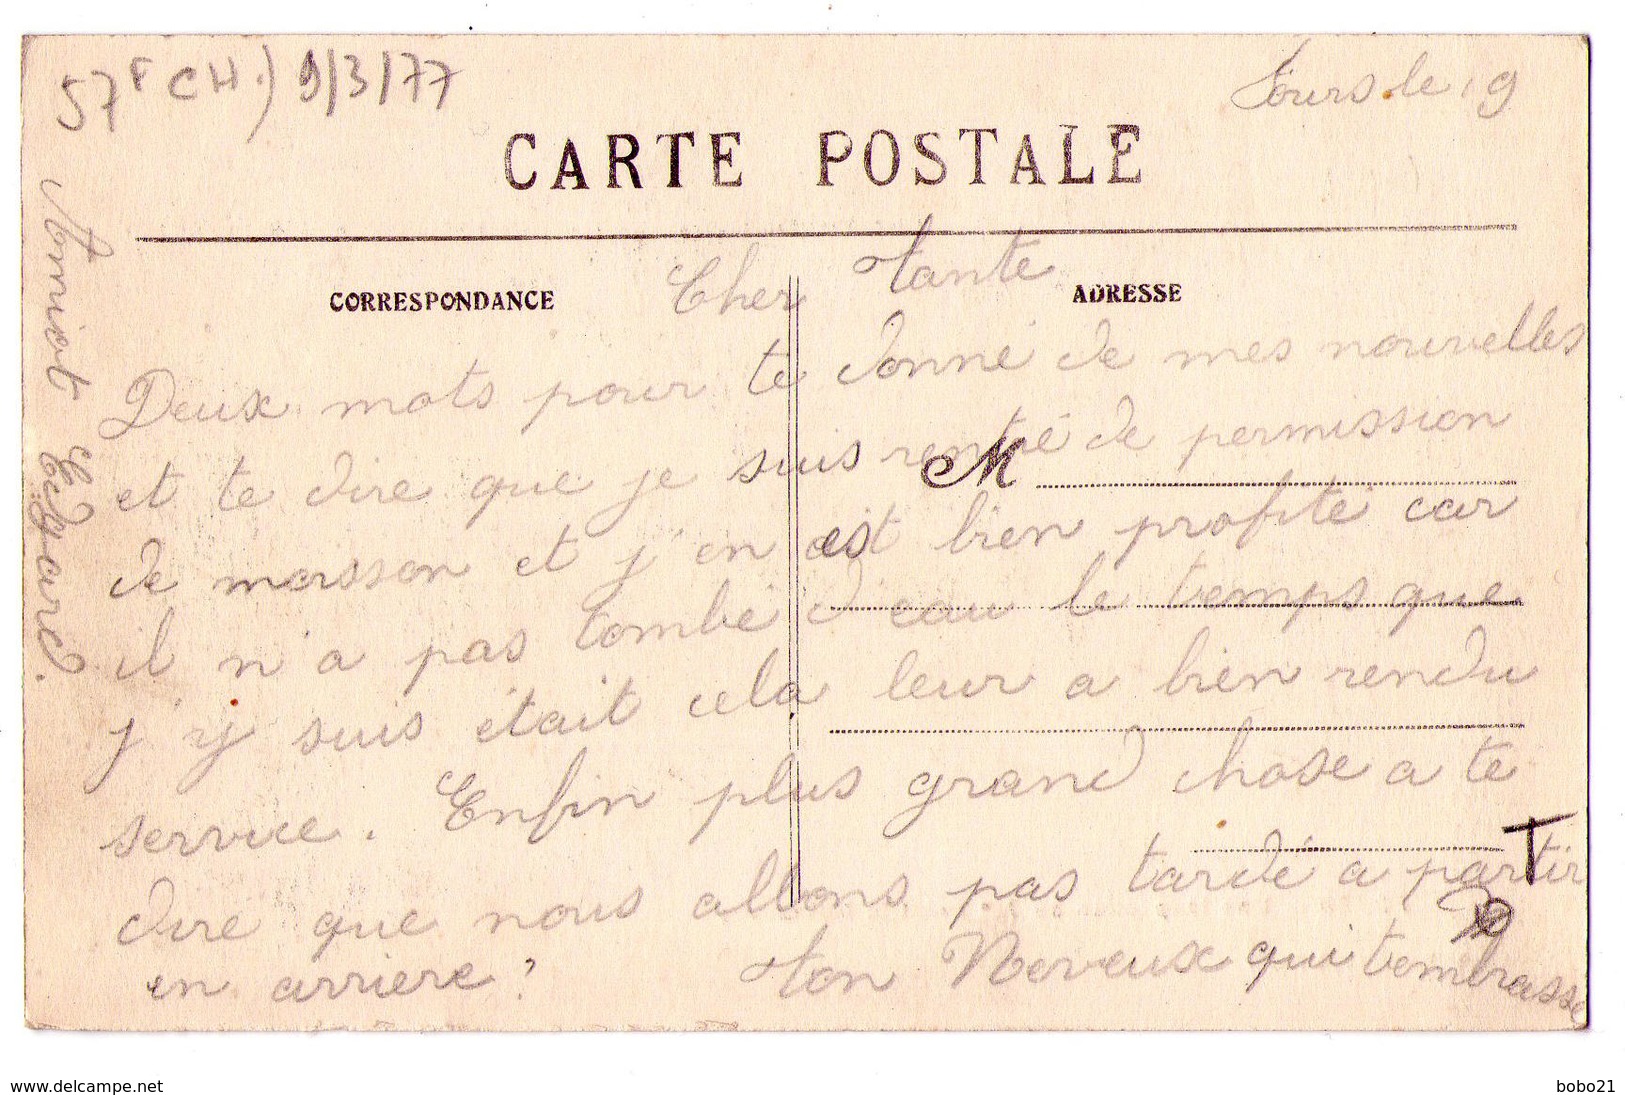 57F CH.) 9/3/77
Tours le 19
CARTE POSTALE
CORRESPONDANCE
ADRESSE
Cher tante
Deux mots pour te donné de mes nouvelles
et te dire que je suis rentré de permission
M
de moisson et j'en est bien profité car
il n'a pas tombé d'eau le temps que
j'y suis était cela leur a bien rendu
service. Enfin plus grand chose a te
dire que nous allons pas tardé a partir
en arriere? ton Neveux qui t'embrasse
Amiot Edgard.
T
www.delcampe.net
bobo21